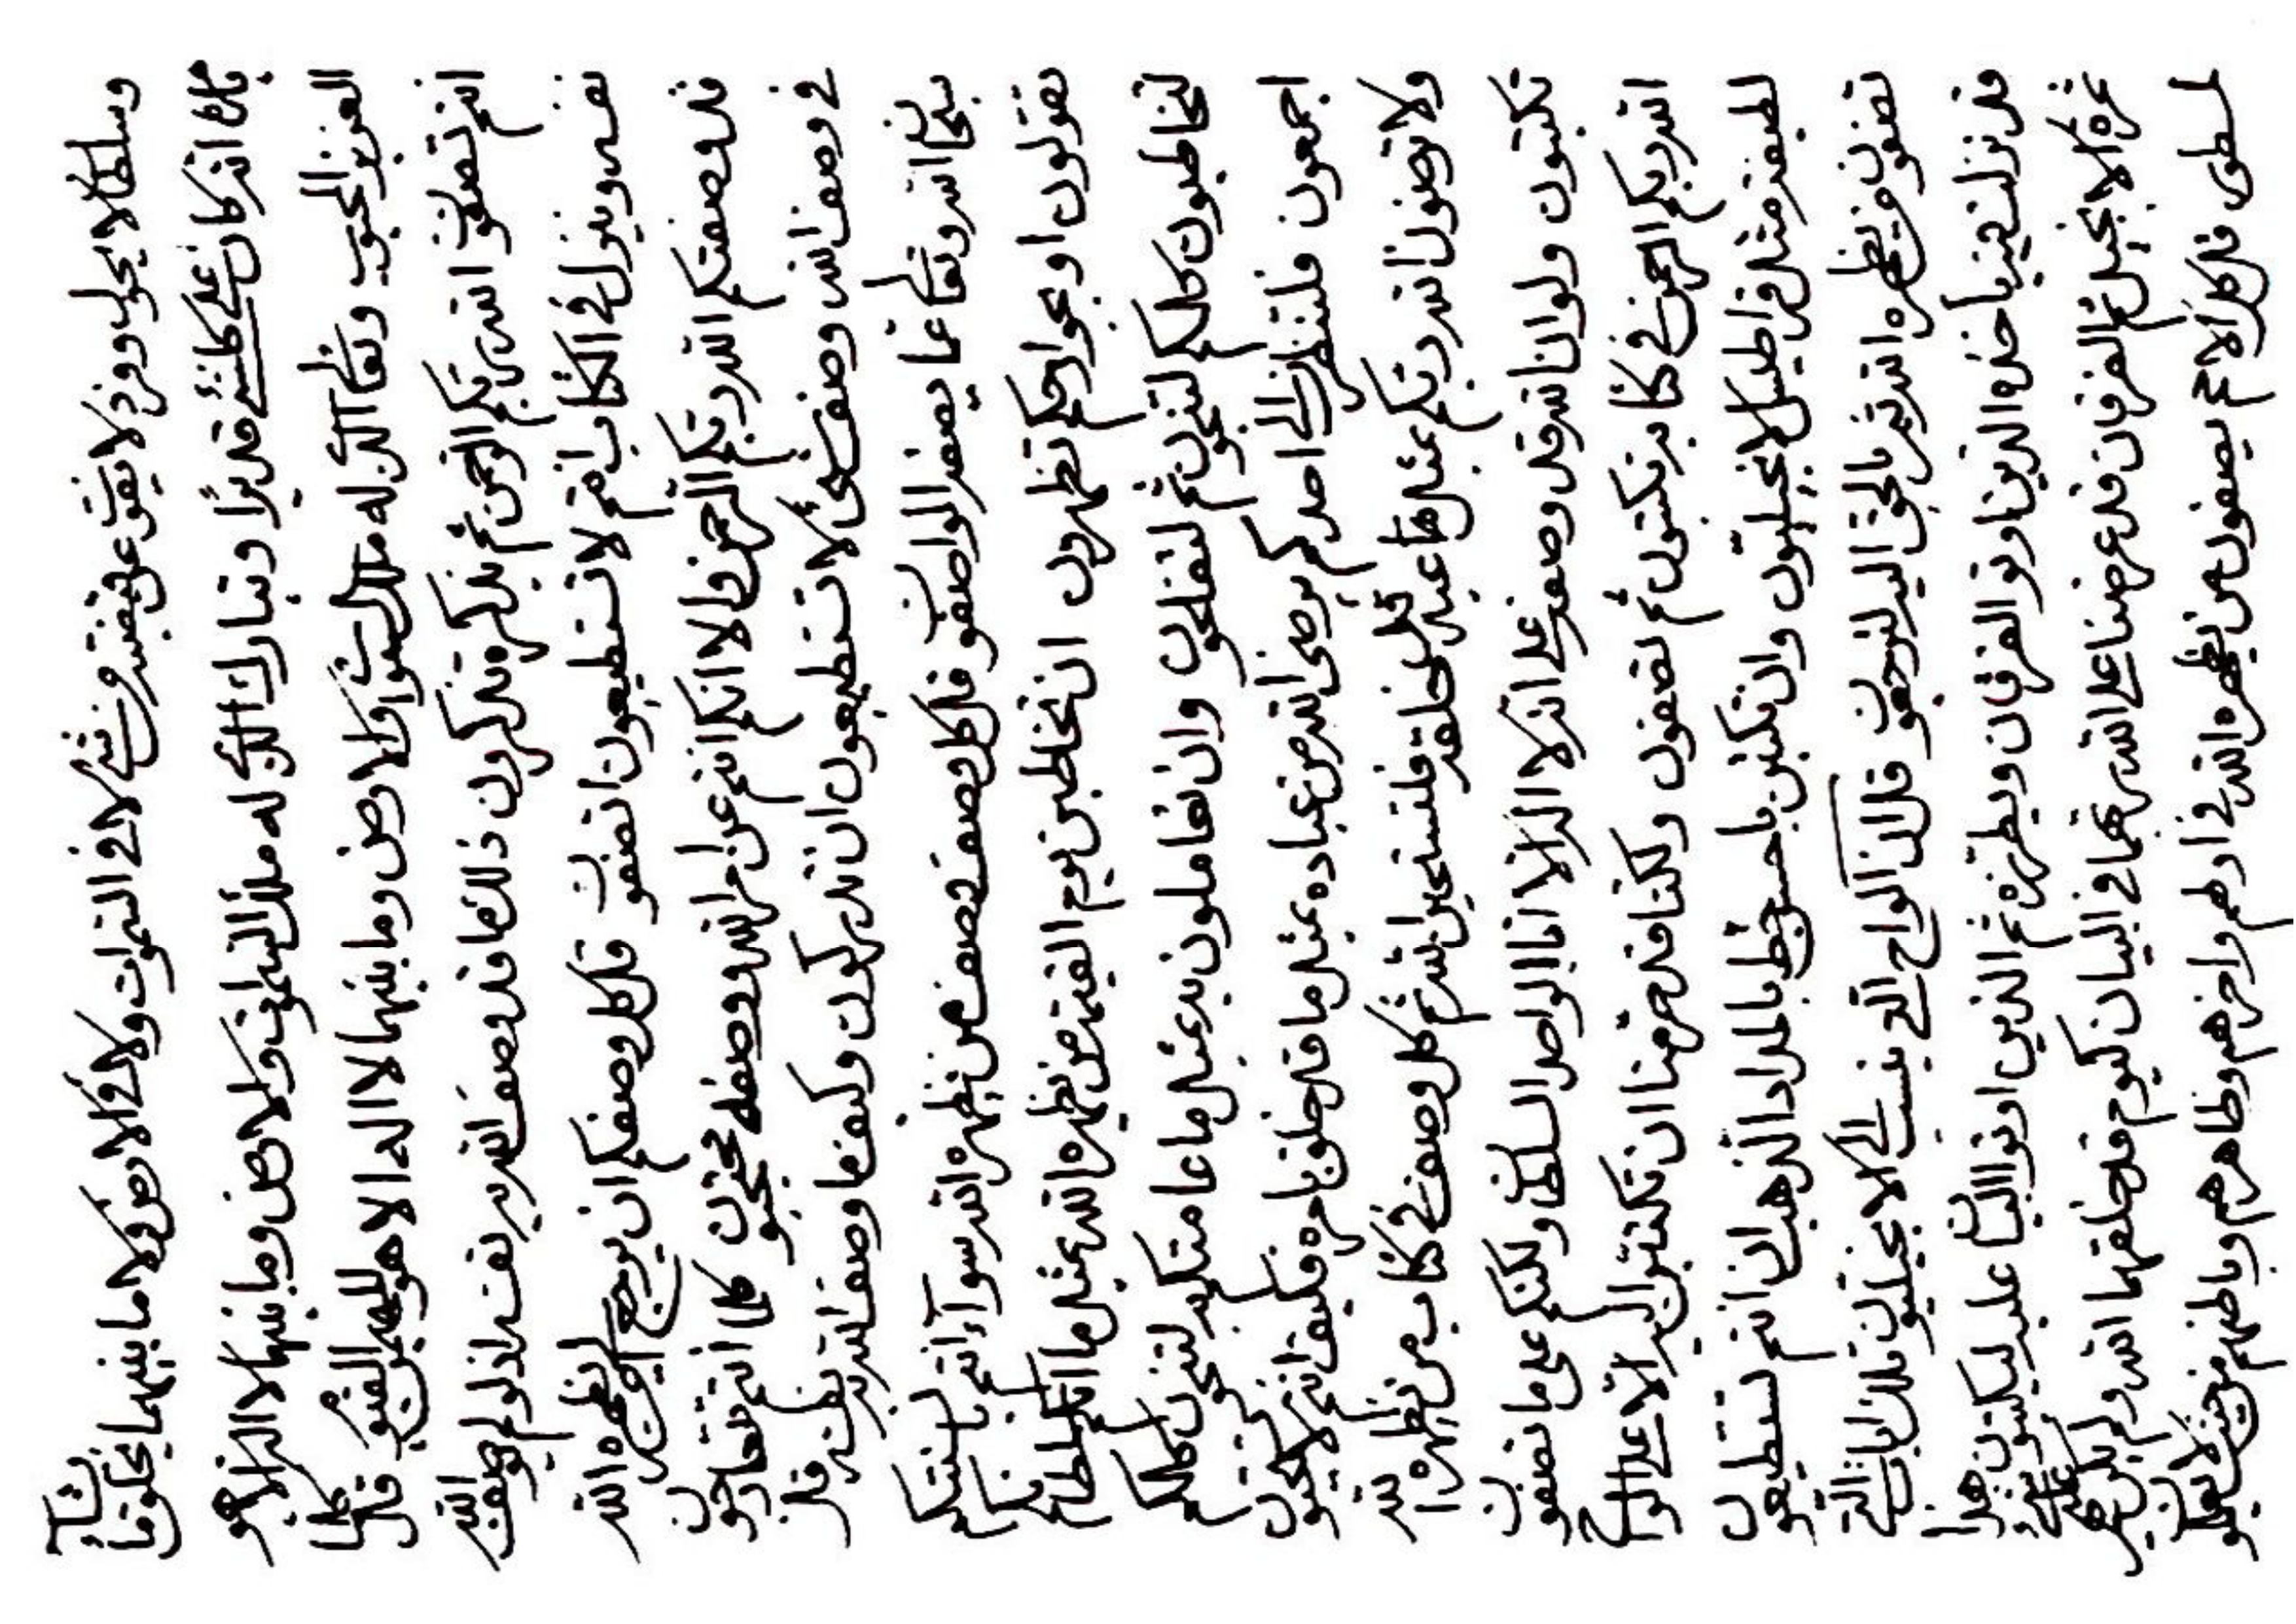 وسلطانا لا يحول وفرد لا يفوت عن قبضته من شئ لا في السموات ولا في الارض ولا ما بينهما يخلق ما يشآء
بامره انه كان على كلشئ قديرا وتبارك الذي له ملك السموات والارض وما بينهما لا اله الا هو
العزيز المحبوب وتعالى الذي له ملك السموات والارض وما بينهما لا اله الا هو المهيمن القيوم قل كلما
انتم تصفون الله ربكم الرحمن ثم بذكره تذكرون ذلك ما قد وصف الله به نفسه اذ لو لم يصف الله
نفسه وينزل في الكتاب انتم لا تستطيعون ان تصفون قل كل وصفكم ان يرجع الى من يظهره الله
قد وصفتكم الله ربكم الرحمن والا انكم انتم عن امر الله ووصفه محتجبون كلما انتم تتعارجون
في وصف الله وصف شئ لا تستطيعون ان تدركون وكيف ما وصف الله به نفسه قل
سبحان الله وتعالى عما يصف الواصفون قل كل وصف تصف من يظهره الله سوآء انتم بالسنتكم
تقولون او بجوارحكم تظهرون ان تخاطبن يوم القيمة من يظهره الله بمثل ما انكم سلطانكم
لتخاطبون كلكم لتنجون ثم لتفلحون وان تعاملون به بمثل ما عاملتكم به لتنجون كلكم
اجمعون فلتنظرن الى احدكم يرضى الله من عباده بمثل ما قد خلق بامره فكيف انتم لا تحبون
ولا تصفون الله ربكم بمثل ما عبد قد خلقه فلتستحين الله ثم كل وصف في كتاب من يظهره الله
تكتبون ولو ان الله قد وصف على انه لا اله الا انا الواحد السلطان ولكنكم على ما تصفون
الله ربكم الرحمن في كتابه تكتبون ثم تصفون ولكنا قد حرمنا ان تكتبن اليه الا على الواح
لطيفة مثل قراطيس الانجيليون وان تكتبن باحسن خط بالمداد الذهب ان انتم تستطيعون
تصفون من يظهره الله ثم بالحق اليه لترجعون قل ان الواح التي ينسب الى الانجيليون تلك ايات التي
قد نزلت حينئذ باخذه الذين اوتوا الفرقان وبطرزه ثم الذين اوتوا البيان عليه ليكتبون هذا
ثمرة الانجيل ثم الفرقان قد عرضنا على الله ربهما في البيان كيوم قد خلقهما الله ولم يكن
لمظهر قل كل الامم يصفون من يظهره الله في اولهم واخرهم وظاهرهم وباطنهم من حيث لا يعلمون